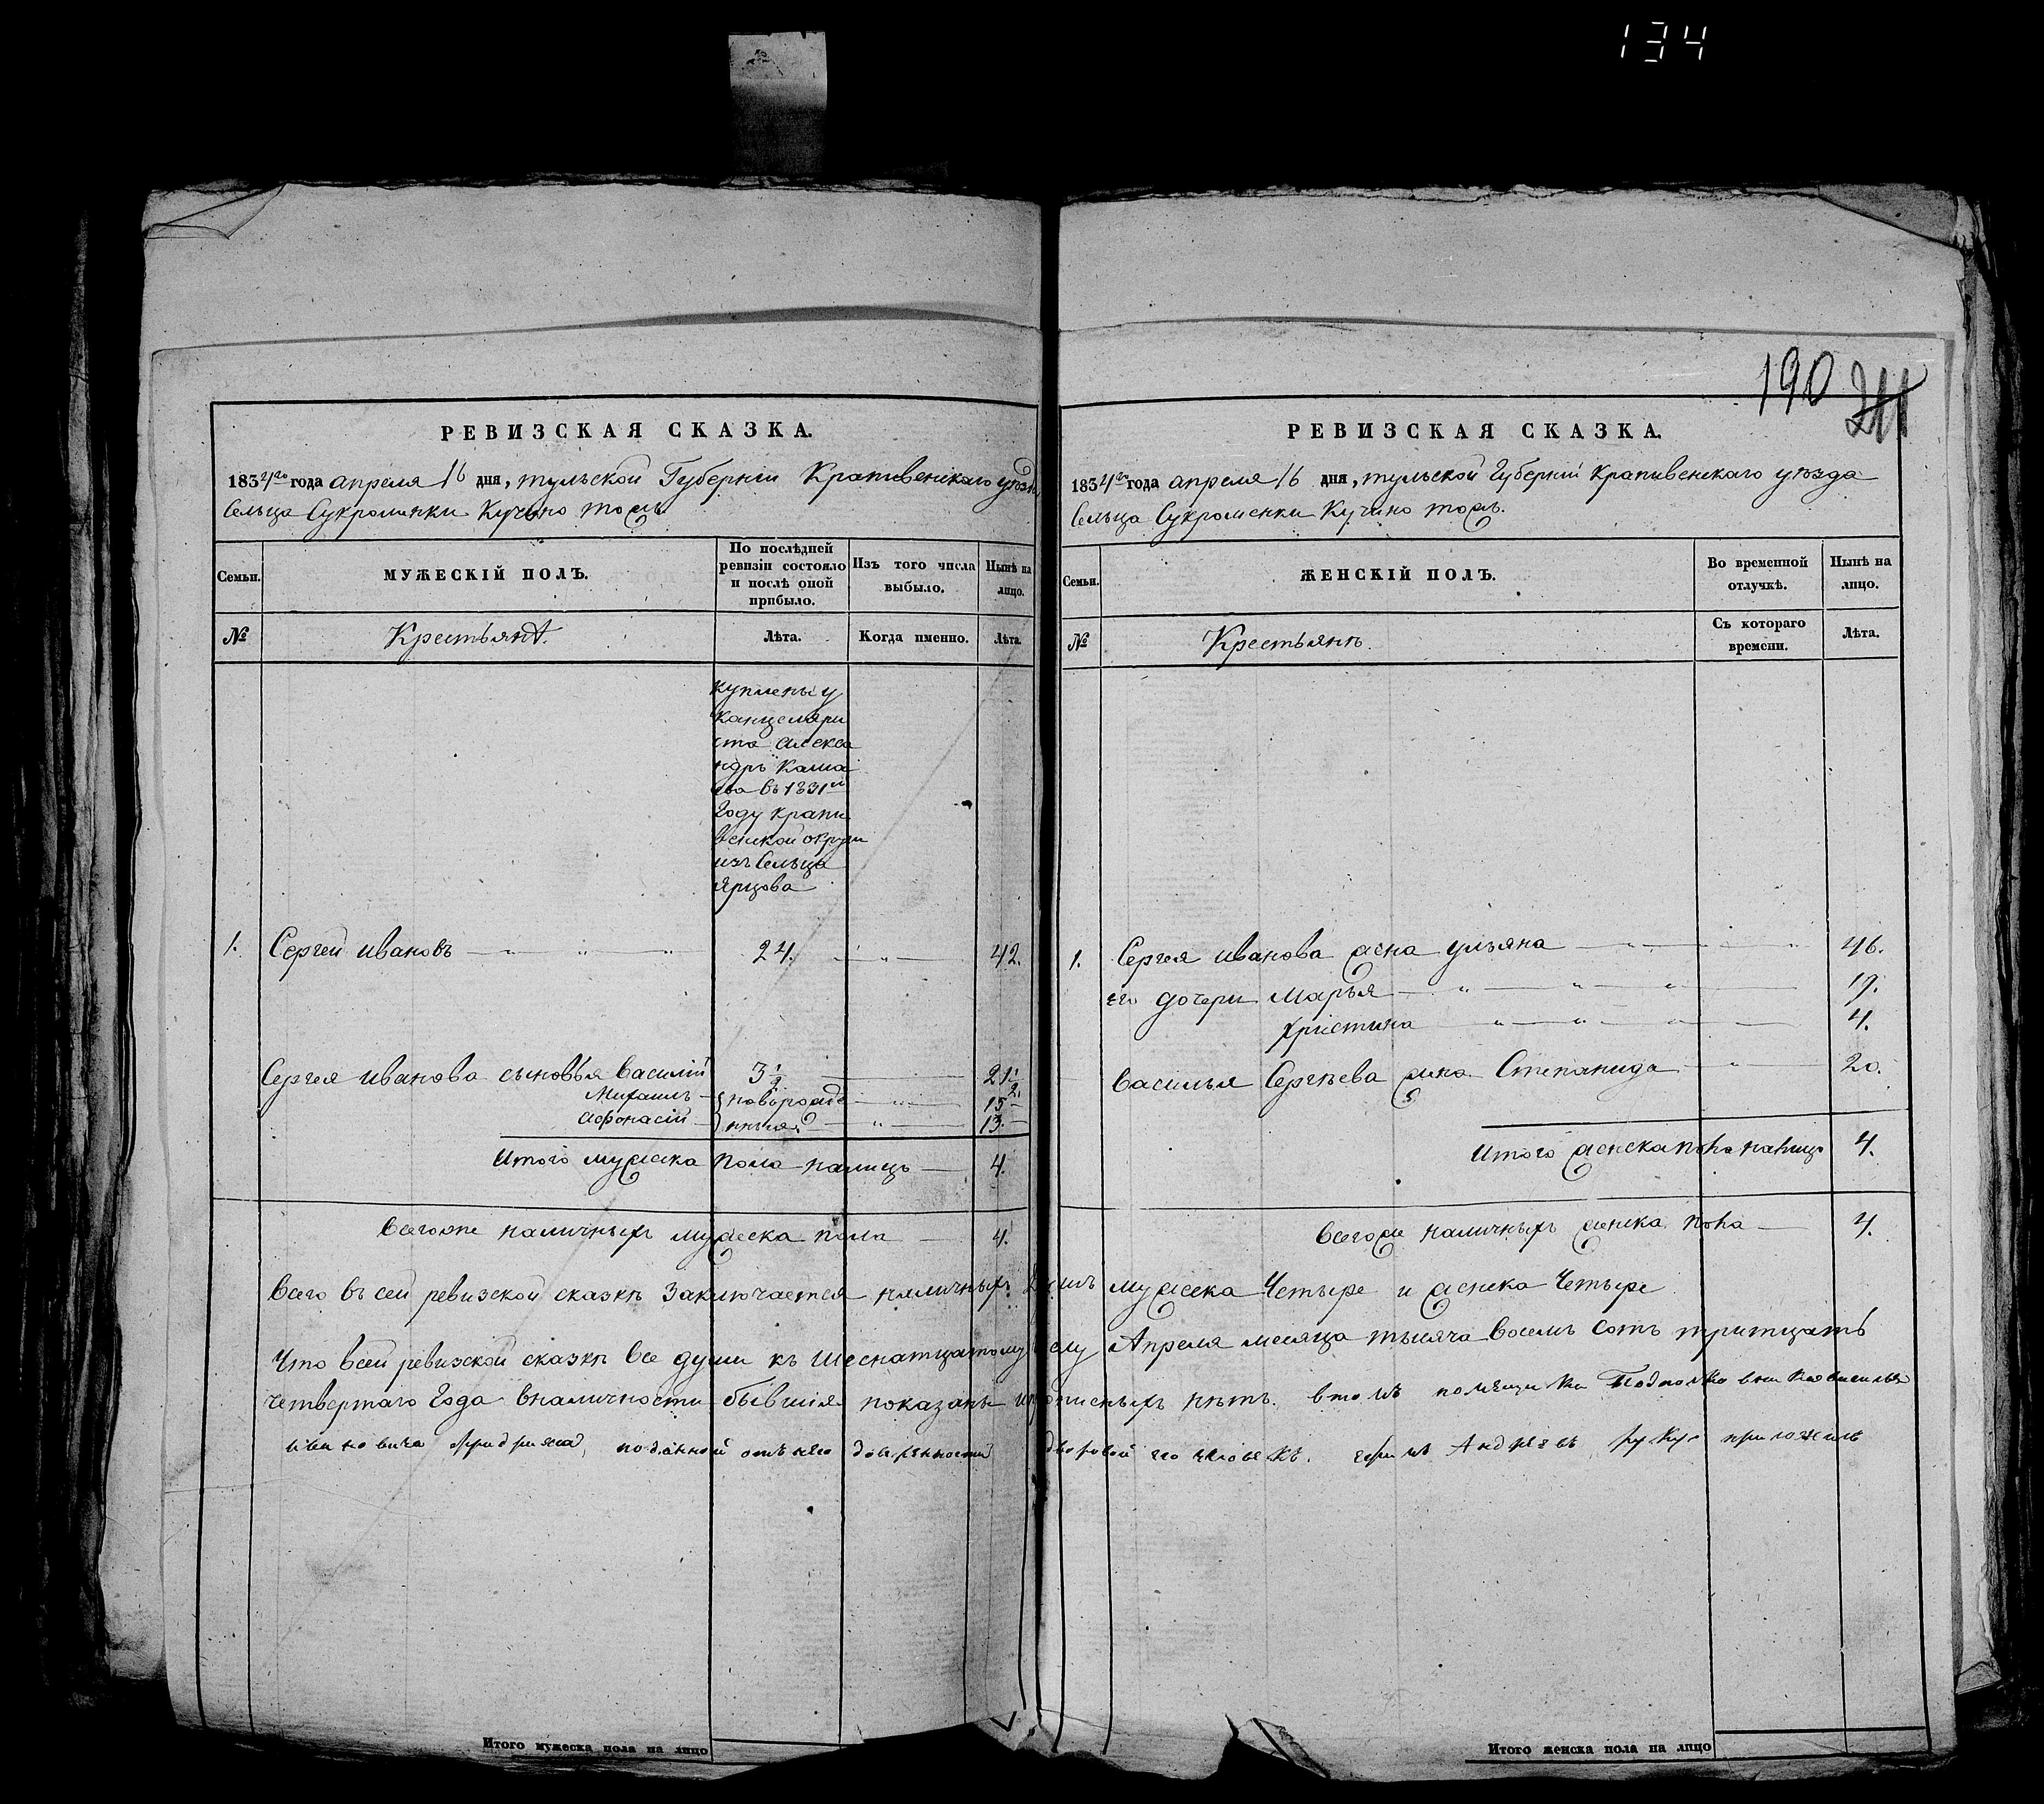 134
190
211
РЕВИЗСКАЯ СКАЗКА.
1834го года апреля 16 дня, тульской Губернии Крапивенскаго уезда
Сельца Сукроминки Кучино тожъ
Семьи.
МУЖЕСКІЙ ПОЛЪ.
По послѣдней ревизіи состояло и послѣ оной прибыло.
Изъ того числа выбыло.
Нынѣ на лицо.
№
Крестьянъ.
Лѣта.
Когда именно.
Лѣта.
куплены у
Канцеляри
ста алекса
ндръ
ва въ 1831м
Году крапи
венской округи
изъ Сельца
Ярцова
1. Сергей ивановъ 24. 42.
Сергея иванова сыновья василій 3 1/2 21 1/2
Михаилъ новорожде 15
Афонасій нныя 13.
Итого мужеска пола налицъ 4.
Всегоже наличныхъ мужеска пола 4.
РЕВИЗСКАЯ СКАЗКА.
1834го года апреля 16 дня, тульской Губерніи Крапивенскаго уѣзда
Сельца Сукроменки Кучино тожъ.
Семьи.
ЖЕНСКІЙ ПОЛЪ.
Во временной отлучкѣ.
Нынѣ на лицо.
№
Крестьянъ.
Съ котораго времени.
Лѣта.
1. Сергея иванова жена ульяна 46.
его дочери Марья 19.
христина 4.
Василья Сергѣева жена Степанида 20.
Итого женска пола налицо 4.
Всегоже наличныхъ женска пола 4.
Всего въ сей ревизской сказкѣ Заключается наличныхъ Душъ мужеска Четыре и женска Четыре
Что всей ревизской сказкѣ все души къ шеснатцатому числу Апреля месяца тысяча восемъ сотъ тритцать
четвертаго Года вналичности бывшія показаны и прописныхъ нѣтъ. втомъ
ивановича поданной отъ него доверѣнности дворовой его человекъ. Андрѣевъ руку приложилъ
Итого мужеска пола на лицо
Итого женска пола на лицо